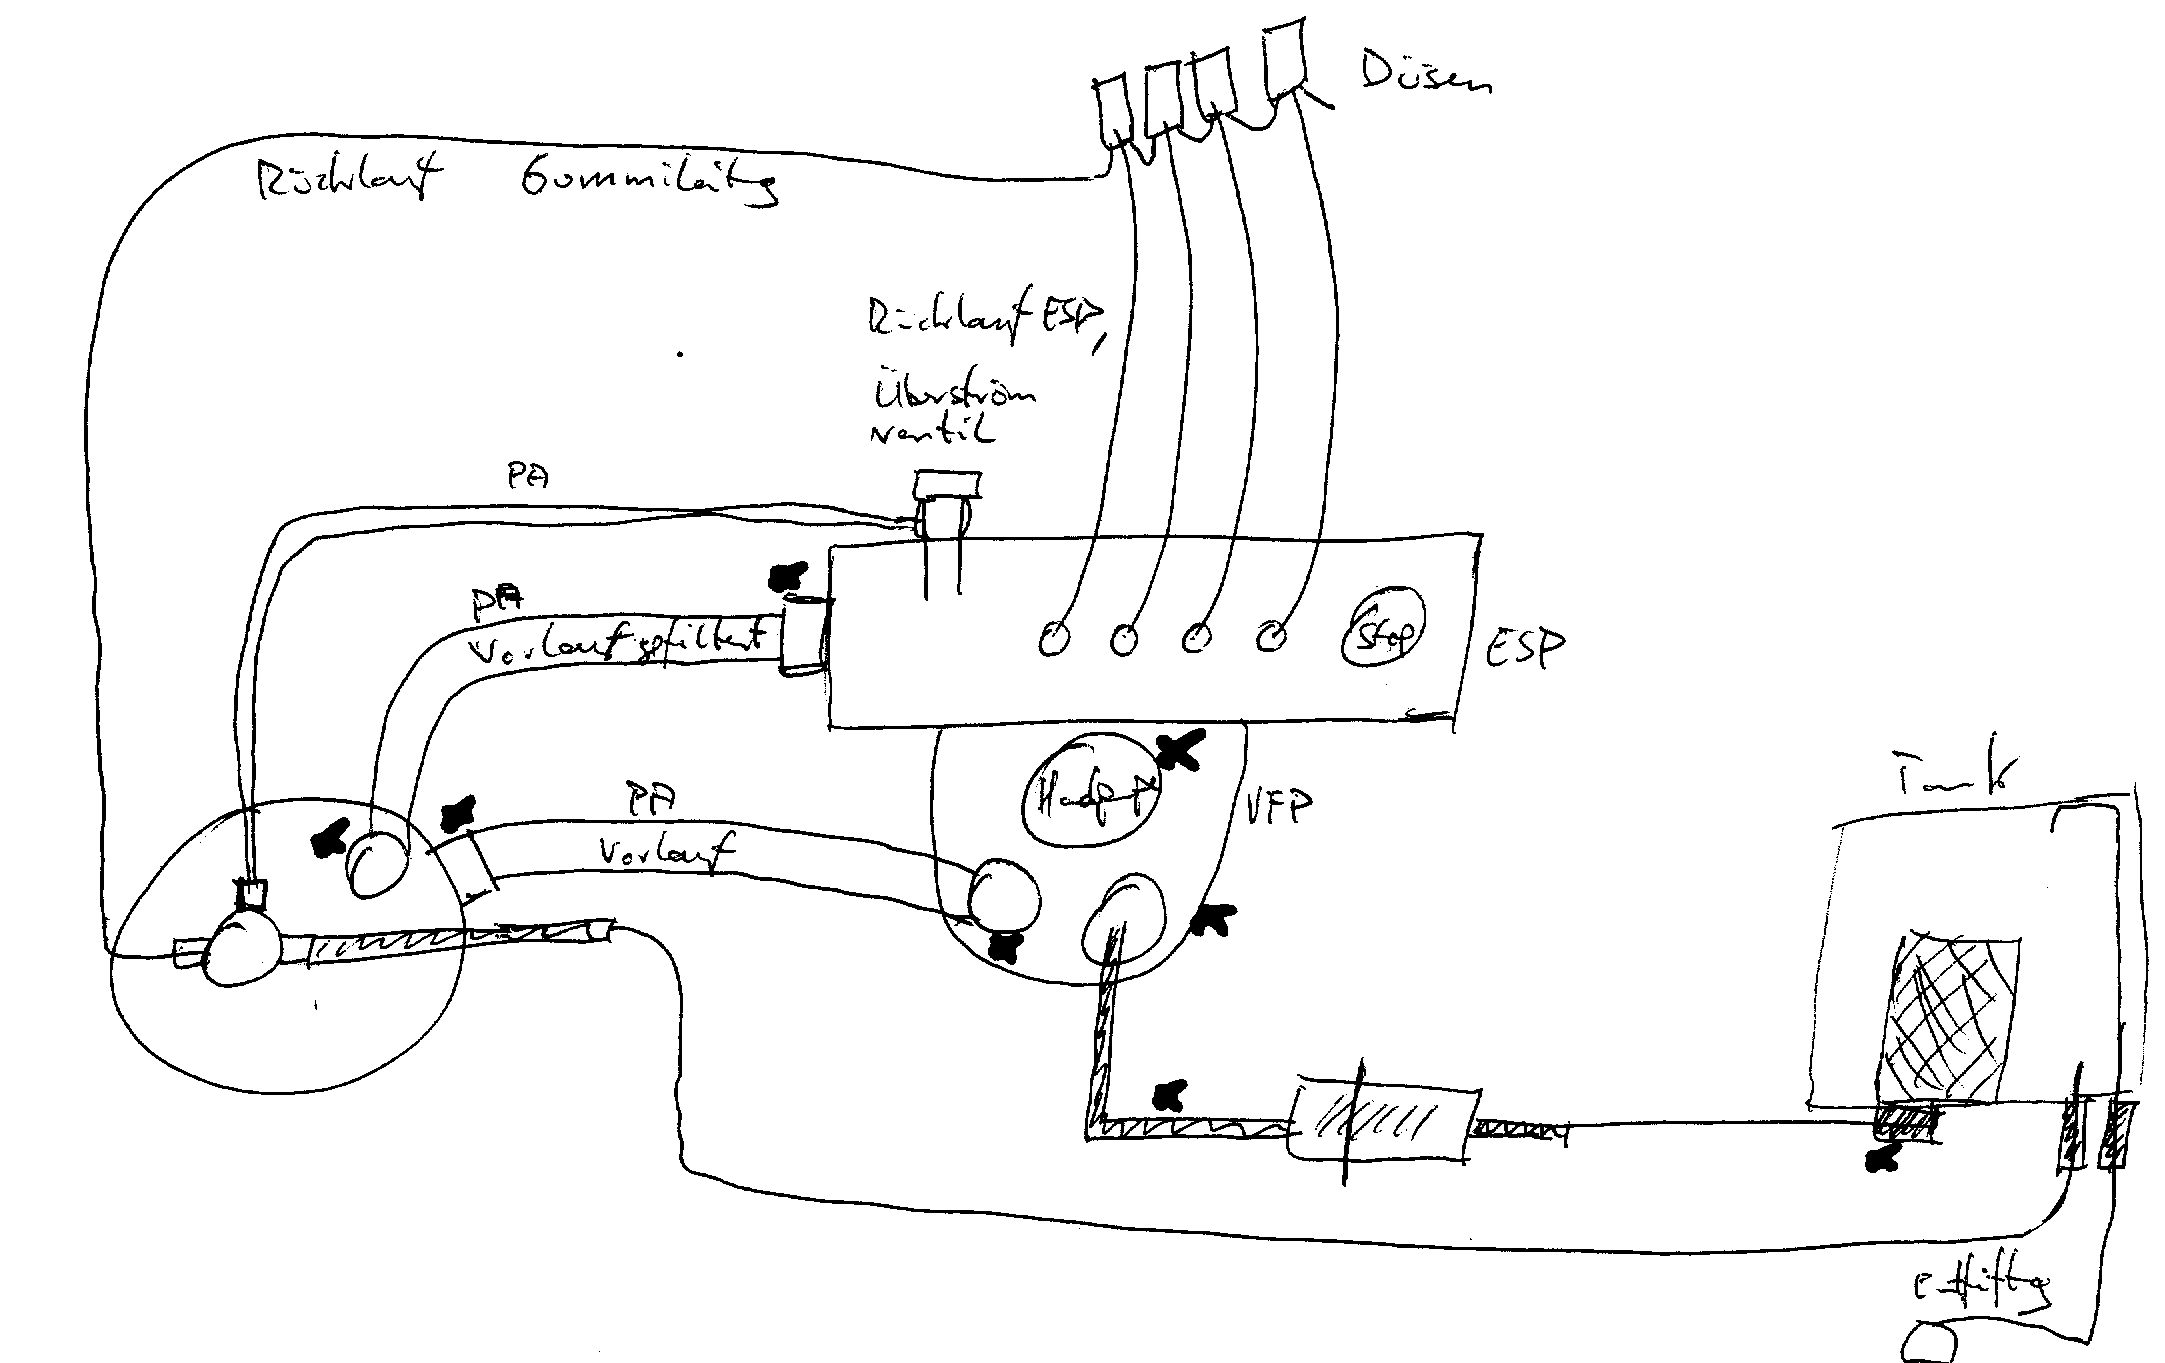 Düsen
Rücklauf Gummileitg
Rücklauf ESP,
Überström
ventil
PA
PA
Vorlauf gefiltert
Stop
ESP
Handp.
VFP
PA
Vorlauf
Tank
Entlüftg